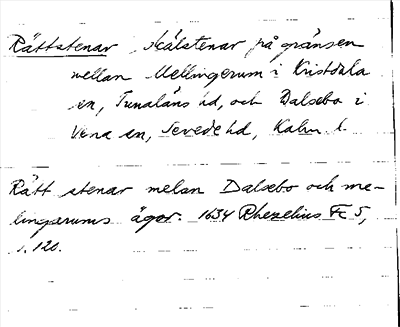 Rättstenar, skälstenar på gränsen
mellan Mellingerum i Kristdala
sn, Tunaläns hd, och Dalsebo i
Vena sn, Sevede hd, Kalm. l.
Rått stenar melan Dalsebo och me-
lingerums ägor. 1634 Rhezelius Fc 5,
s. 120.